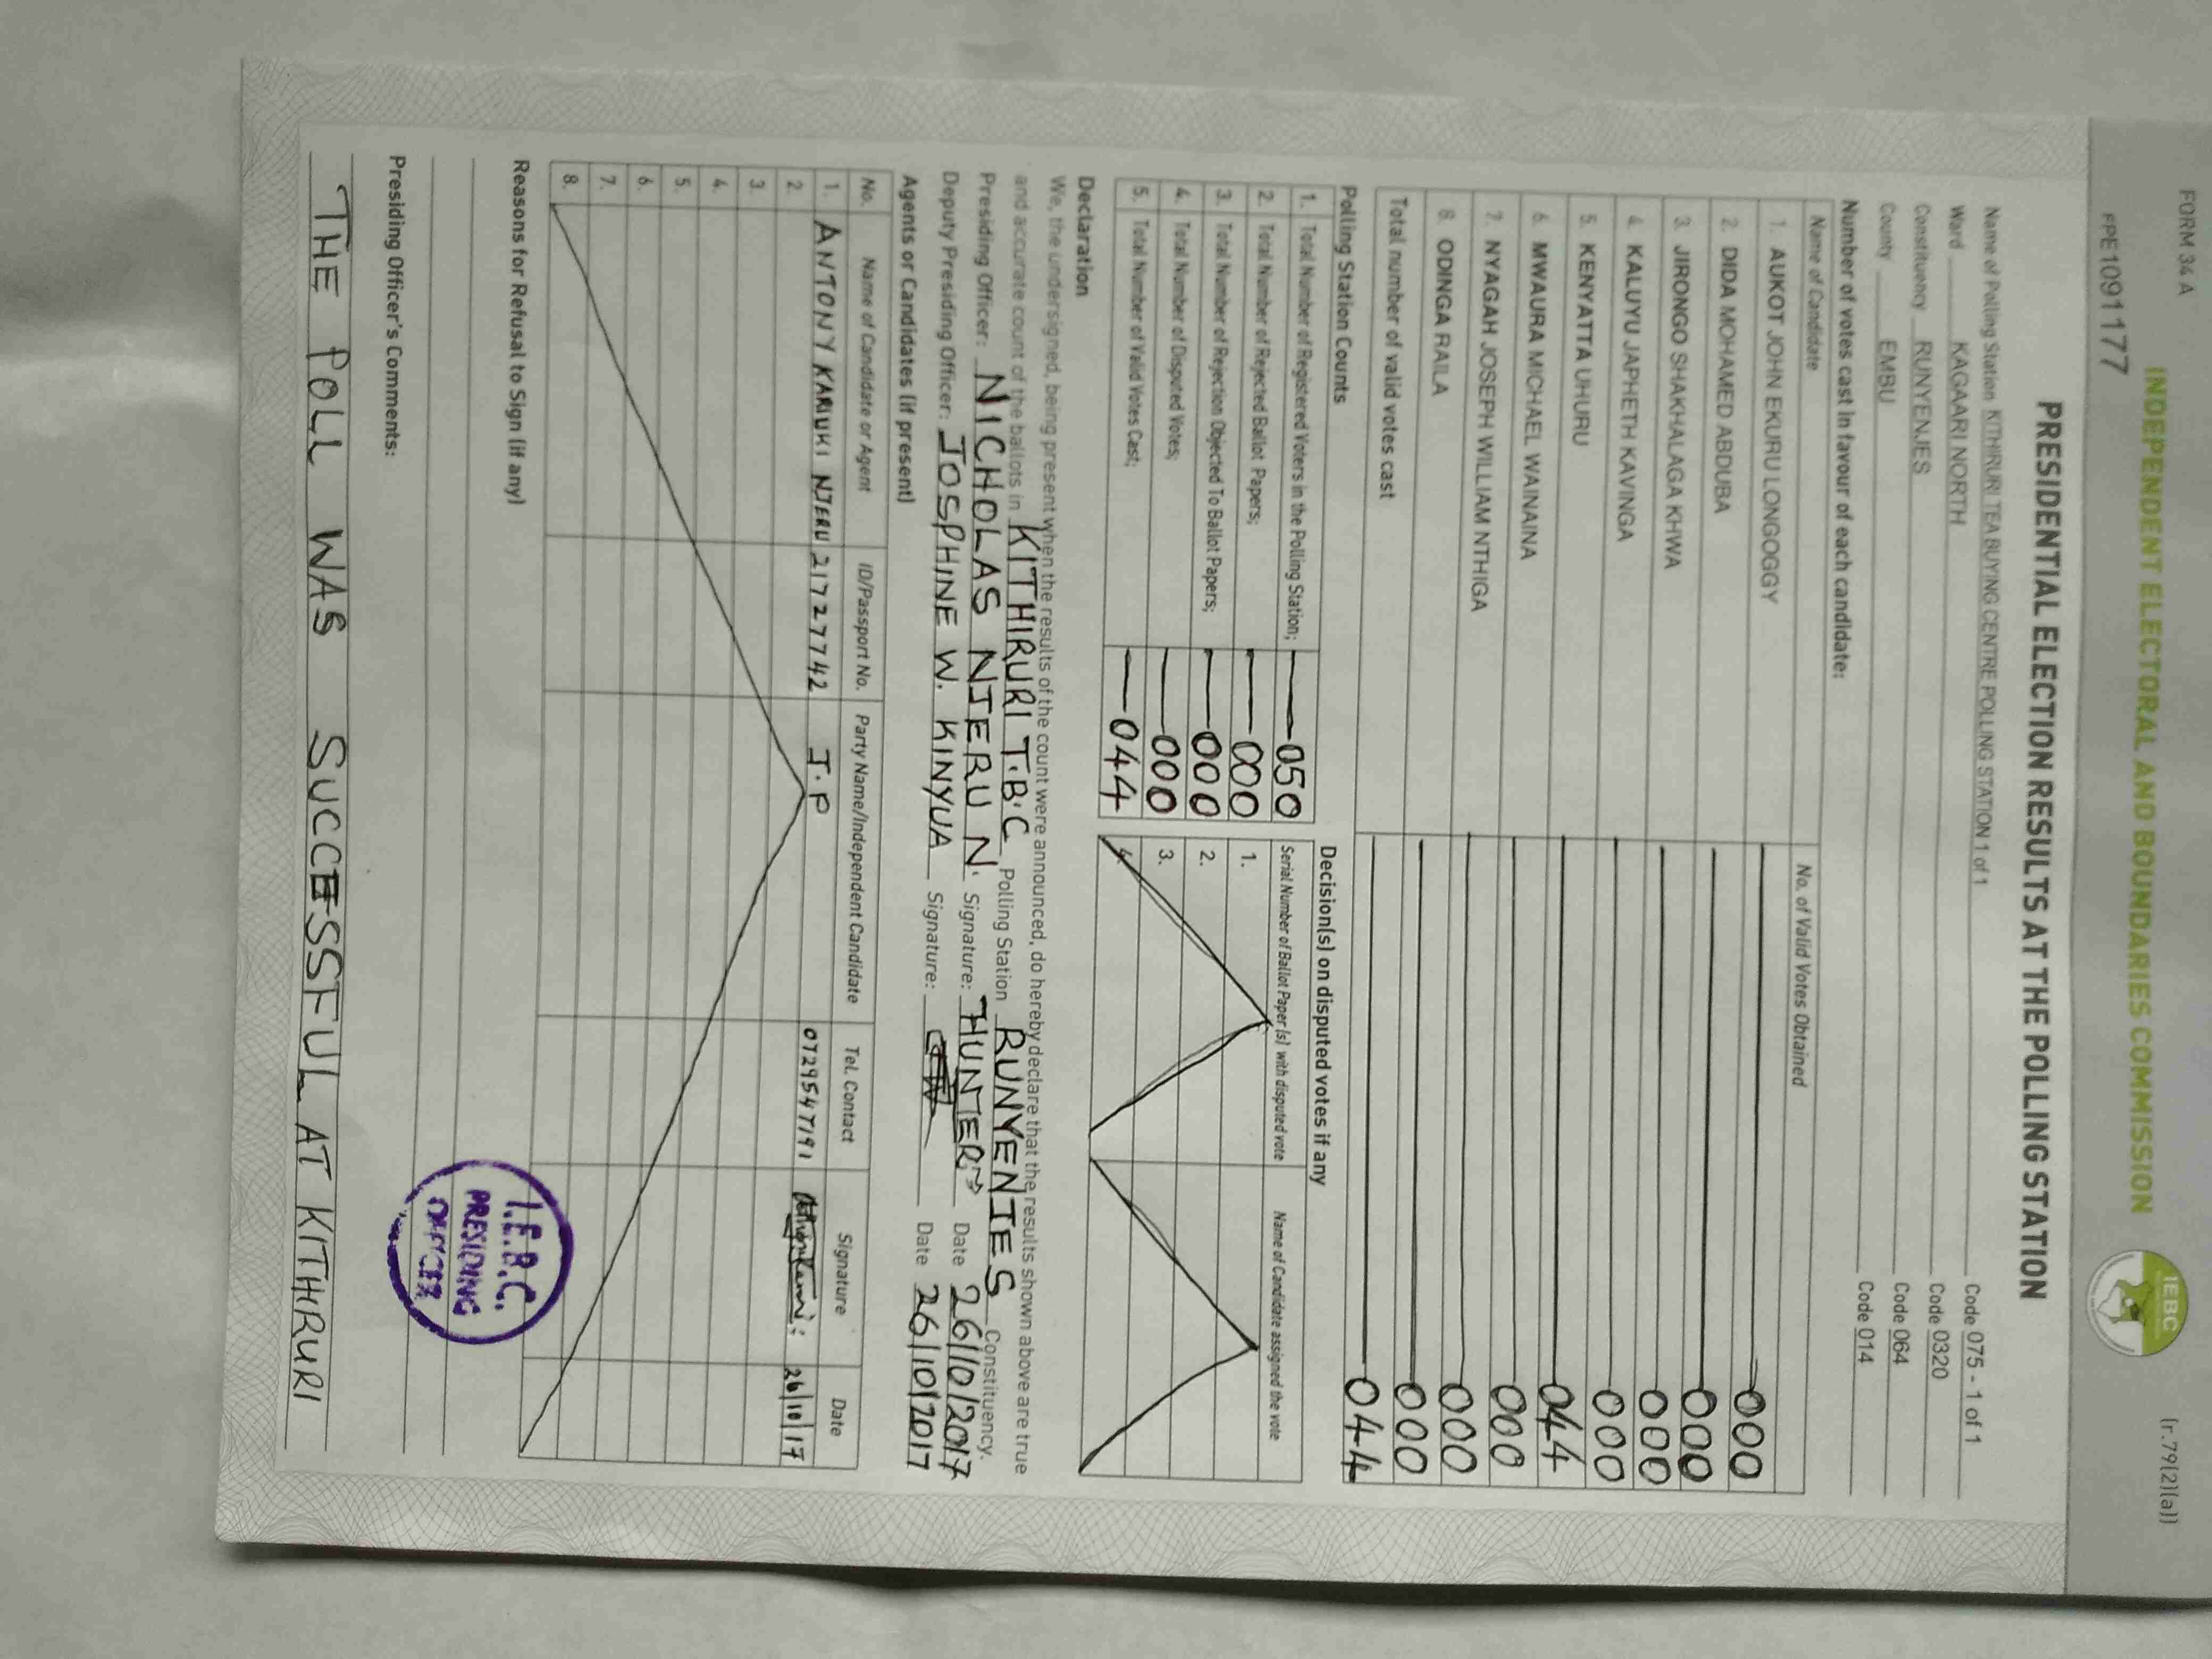 FORM 34 A
(r.79(2)(a))
INDEPENDENT ELECTORAL AND BOUNDARIES COMMISSION
IEBC
PPE1091177
PRESIDENTIAL ELECTION RESULTS AT THE POLLING STATION
Name of Polling Station KITHIRURI TEA BUYING CENTRE POLLING STATION 1 of 1 Code 075 - 1 of 1
Ward KAGAARI NORTH Code 0320
Constituency RUNYENJES Code 064
County EMBU Code 014
Number of votes cast in favour of each candidate:
Name of Candidate No. of Valid Votes Obtained
1. AUKOT JOHN EKURU LONGOGGY 000
2. DIDA MOHAMED ABDUBA 000
3. JIRONGO SHAKHALAGA KHWA 000
4. KALUYU JAPHETH KAVINGA 000
5. KENYATTA UHURU 044
6. MWAURA MICHAEL WAINAINA 000
7. NYAGAH JOSEPH WILLIAM NTHIGA 000
8. ODINGA RAILA 000
Total number of valid votes cast 044
Polling Station Counts
1. Total Number of Registered Voters in the Polling Station; 050
2. Total Number of Rejected Ballot Papers; 000
3. Total Number of Rejection Objected To Ballot Papers; 000
4. Total Number of Disputed Votes; 000
5. Total Number of Valid Votes Cast; 044
Decision(s) on disputed votes if any
Serial Number of Ballot Paper (s) with disputed vote Name of Candidate assigned the vote
1.
2.
3.
4.
Declaration
We, the undersigned, being present when the results of the count were announced, do hereby declare that the results shown above are true
and accurate count of the ballots in KITHIRURI T.B.C Polling Station RUNYENJES Constituency.
Presiding Officer: NICHOLAS NJERU N. Signature: HUNTER Date 26/10/2017
Deputy Presiding Officer: JOSPHINE W. KINYUA Signature: Date 26/10/2017
Agents or Candidates (if present)
No. Name of Candidate or Agent ID/Passport No. Party Name/Independent Candidate Tel. Contact Signature Date
1. ANTONY KARIUKI NJERU 21727742 J.P 0729547191 26/10/17
2.
3.
4.
5.
6.
7.
8.
Reasons for Refusal to Sign (if any)
I.E.B.C.
PRESIDING
OFFICER
Presiding Officer's Comments:
THE POLL WAS SUCCESSFUL AT KITHIRURI